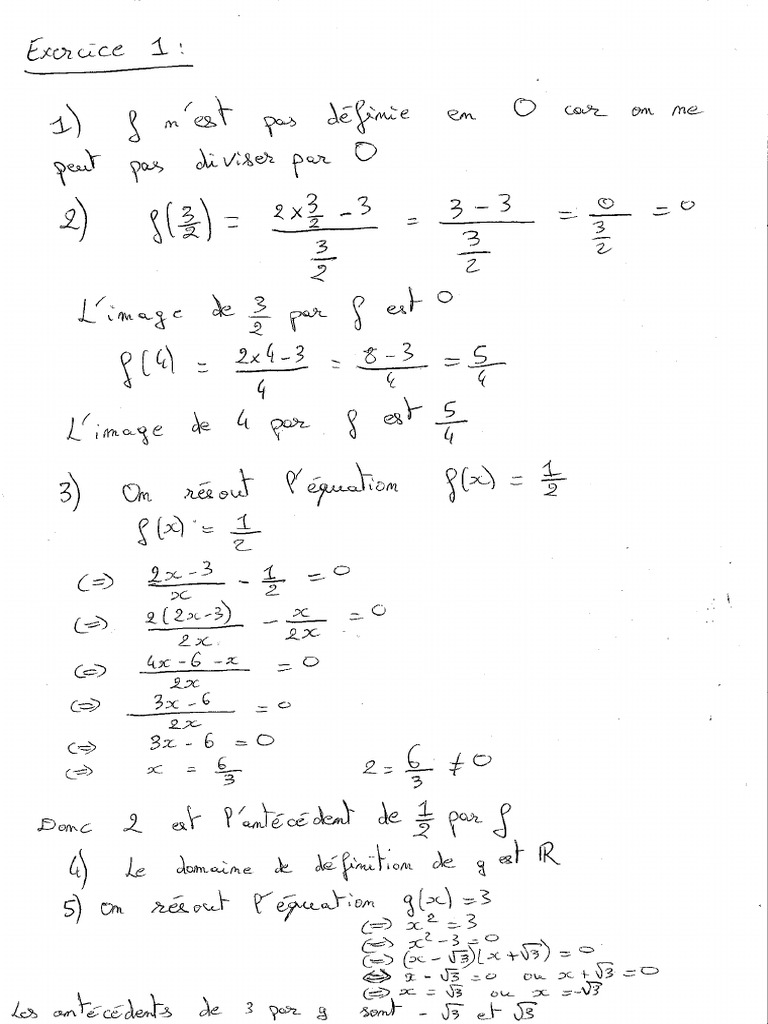 Exercice 1 :
1) f n'est pas définie en 0 car on ne
peut pas diviser par 0
2) f(3/2) = (2×3/2 - 3)/(3/2) = (3 - 3)/(3/2) = 0/(3/2) = 0
L'image de 3/2 par f est 0
f(4) = (2×4-3)/4 = (8-3)/4 = 5/4
L'image de 4 par f est 5/4
3) On résout l'équation f(x) = 1/2
f(x) = 1/2
(=) (2x-3)/x - 1/2 = 0
(=) 2(2x-3)/2x - x/2x = 0
(=) (4x-6-x)/2x = 0
(=) (3x-6)/2x = 0
(=) 3x-6 = 0
(=) x = 6/3 2 = 6/3 ≠ 0
Donc 2 est l'antécédent de 1/2 par f
4) Le domaine de définition de g est ℝ
5) On résout l'équation g(x) = 3
(=) x² = 3
(=) x²-3 = 0
(=) (x-√3)(x+√3) = 0
(=) x-√3 = 0 ou x+√3 = 0
(=) x = √3 ou x = -√3
Les antécédents de 3 par g sont -√3 et √3